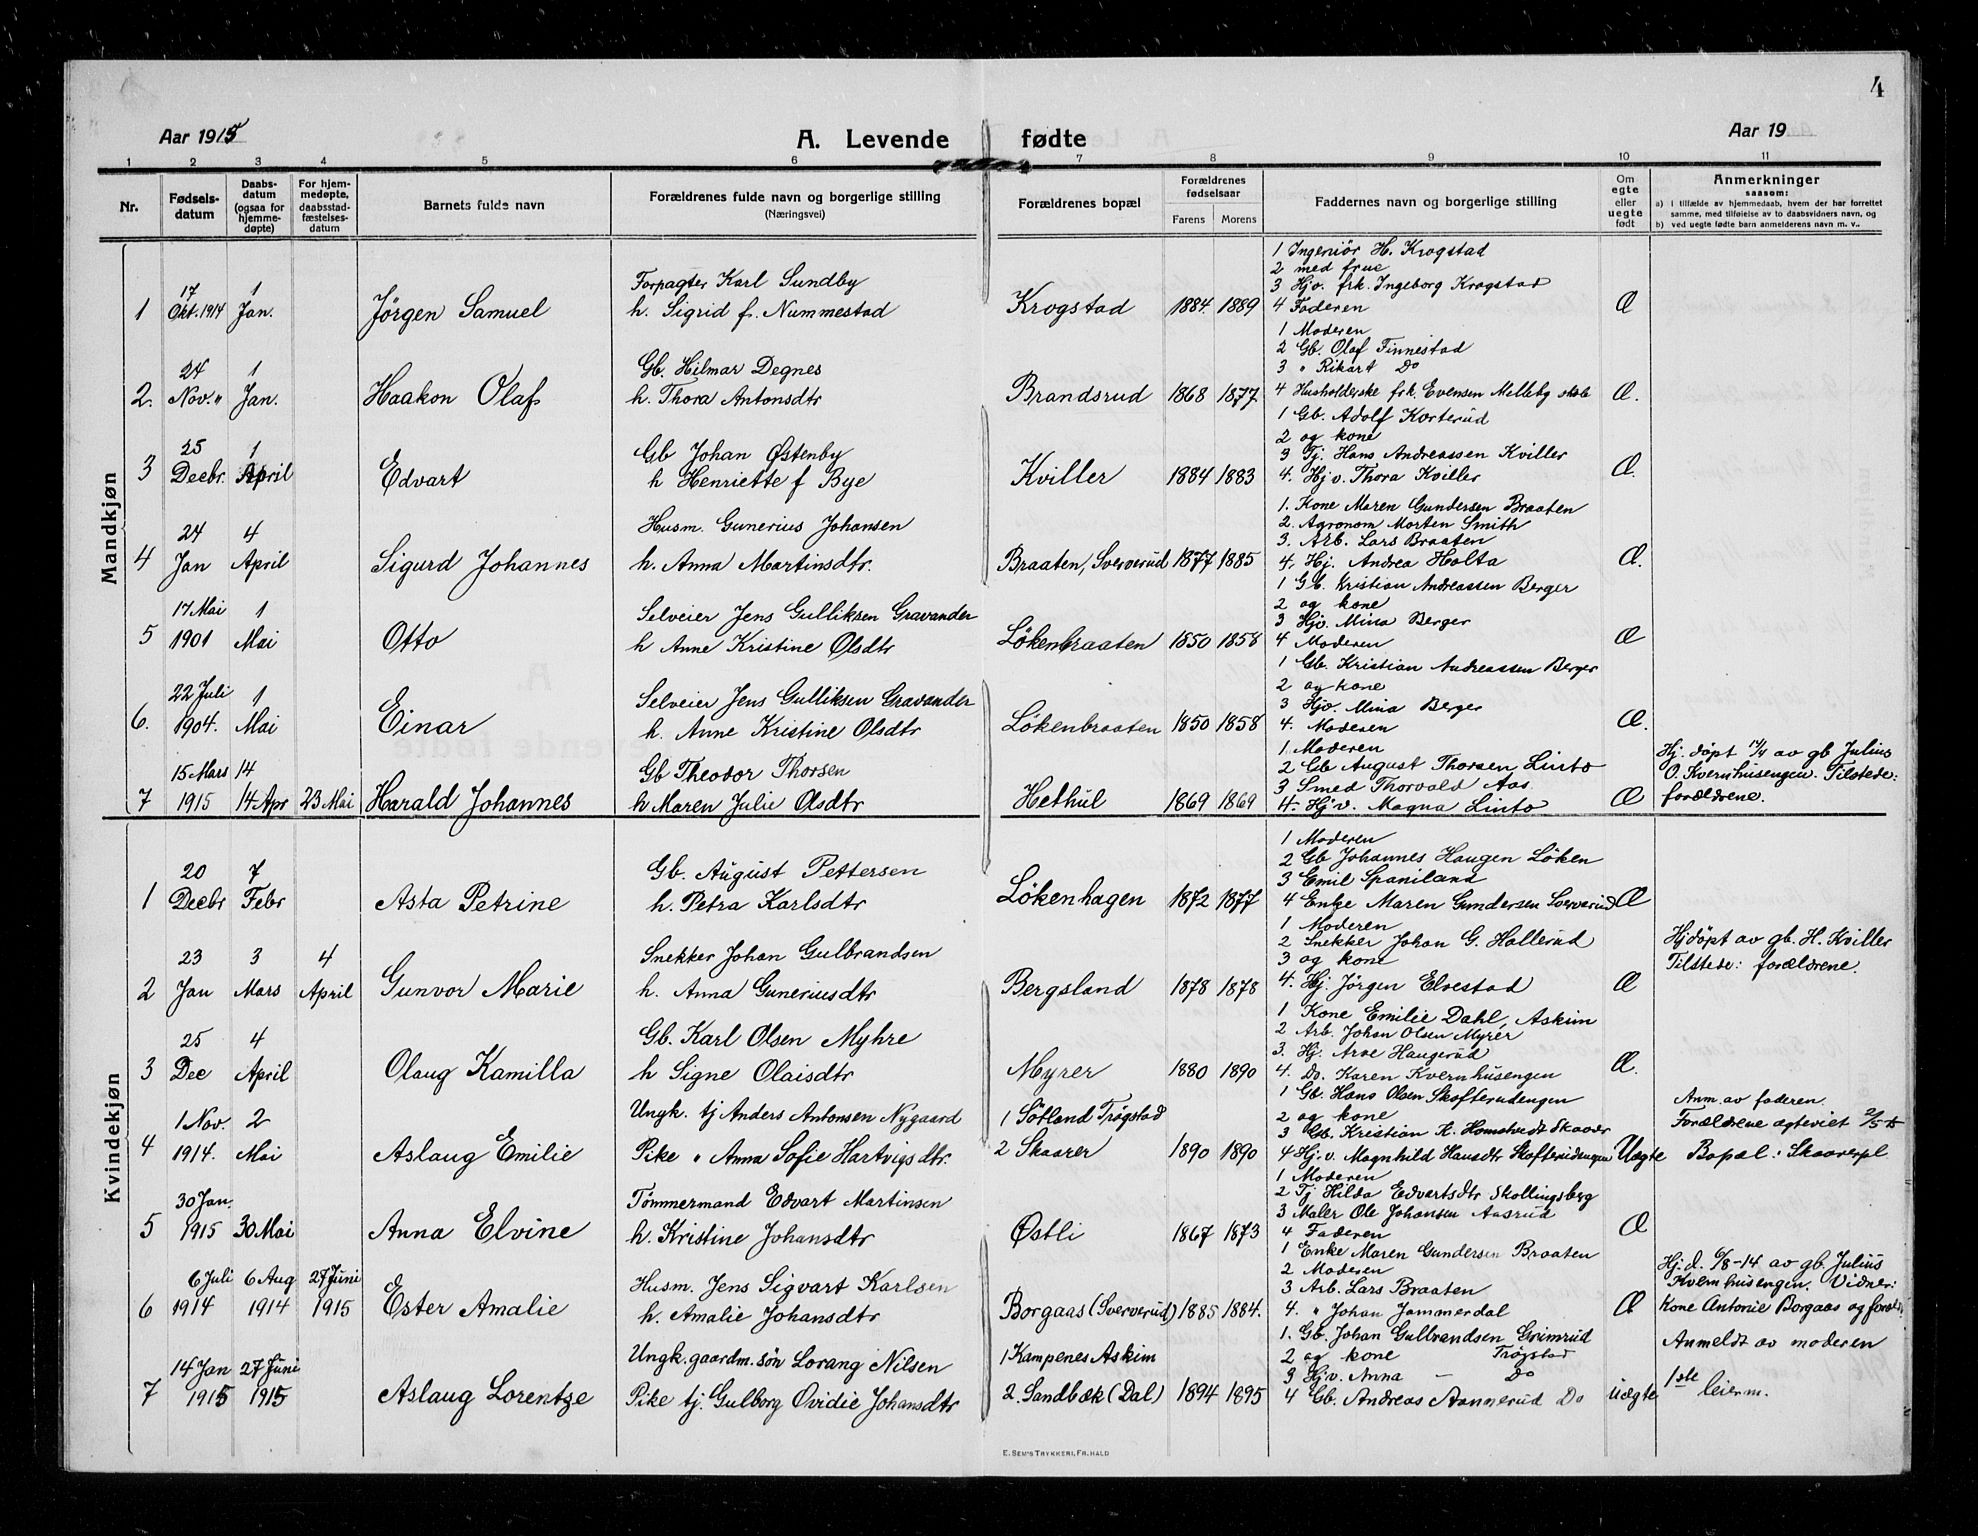 4
Aar 1915 A. Levende fødte Aar 19
1 2 3 4 5 6 7 8 9 10 11
Nr. Fødsels-datum Daabs-datum (ogsaa for hjemme-døpte) For hjem-medøpte, daabsstad-fæstelses-datum Barnets fulde navn Forældrenes fulde navn og borgerlige stilling (Næringsvei) Forældrenes bopæl Forældrenes fødselsaar Farens Morens Faddernes navn og borgerlige stilling Om egte eller uegte født Anmerkninger saasom: a) I tilfælde av hjemmedaab, hvem der har forrettet samme, med tilføielse av to daabsvidners navn, og b) ved uegte fødte barn anmelderens navn m. v..
Mandkjøn
1 17 Okt. 1914 1 Jan. Jørgen Samuel
Forpagter Karl Sundby
h. Sigrid f. Nummestad
Krogstad 1884. 1889
1 Ingeniör H. Krogstad
2 med frue
3 Hjv. frk. Ingeborg Krogstad
4 Faderen
Æ
2. 24 Nov. " 1 Jan. Haakon Olaf
Gb. Hilmar Degnes
h. Thora Antonsdtr
Brandsrud 1868 1877
1 Moderen
2 Gb. Olaf Finnestad
3 " Rikart Do
4 Husholderske frk. Evensen Melleby skole
Æ.
3 25 Decbr. 1 April Edvart
Gb Johan Østenby
h Henriette f Bye
Kviller 1884 1883
1 Gb. Adolf Korterud
2 og kone
3 Tj. Hans Andreassen Kviller
4. Hjv. Thora Kviller
Æ.
4 24 Jan 4 April Sigurd Johannes
Husm. Gunerius Johansen
h. Anna Martinsdtr.
Braaten, Sververud 1877 1885
1. Kone Maren Gundersen Braaten
2. Agronom Morten Smith
3. Arb. Lars Braaten
4. Hj. Andrea Holta
Æ.
5 17 Mai 1901 1 Mai Otto
Selveier Jens Gulliksen Gravander
h Anne Kristine Olsdtr
Lökenbraaten 1850 1858
1 Gb. Kristian Andreassen Berger
2 og kone
3 Hjv. Mina Berger
4 Moderen
Æ
6. 22 Juli 1904. 1 Mai Einar
Selveier Jens Gulliksen Gravander
h. Anne Kristine Olsdtr
Lökenbraaten 1850 1858
1 Gb. Kristian Andreassen Berger
2 og kone
3 Hjv. Mina Berger
4. Moderen
Æ.
7 15 Mars 1915 14 14 Apr 23 Mai Harald Johannes
Gb Theodor Thorsen
h Maren Julie Olsdtr
Hethul 1869 1869
1 Moderen
2 Gb August Thorsen Linto
3 Smed Thorvald Aas
4. Hjv. Magna Linto
Æ
Hj. döpt 14/4 av gb Julius
O. Kvernhusengen. Tilstede:
forældrene.
Kvindekjøn
1 20 Decbr 7 Febr Asta Petrine
Gb. August Pettersen
h. Petra Karlsdtr
Lökenhagen 1872 1877
1 Moderen
2 Gb Johannes Haugen Löken
3 Emil Spaniland
4 Enke Maren Gundersen Sververud
Æ
2 23 Jan 3 Mars 4 April Gunvor Marie
Snekker Johan Gulbrandsen
h. Anna Guneriusdtr
Bergsland 1878 1878
1 Moderen
2 Snekker Johan G. Hallerud
3 og kone
4. Hj. Jörgen Elvestad
Æ
Hjdöpt av gb. H. Kviller
Tilstede: forældrene.
3 25 Dec 4 April Olaug Kamilla
Gb. Karl Olsen Myhre
h Signe Olaisdtr
Myrer 1880 1890
1 Kone Emilie Dahl, Askim
2 Arb. Johan Olsen Myrer
3. Hj. Arve Haugerud
4. Do. Karen Kvernhusengen
Æ.
4 1 Nov. 1914. 2 Mai Aslaug Emilie
Ungk. tj Anders Antonsen Nygaard
Pike " Anna Sofie Hartvigsdtr.
1 Sötland Trögstad
2 Skaarer
1890 1890
1 Gb. Hans Olsen Skofterudengen
2 og kone
3 Gb. Kristian H. Homstvedt Skaarer
4 Hjv. Magnhild Hansdtr Skofterudengen
Uægte
Anm. av faderen.
Forældrene egteviet 2/5-15
Bopæl: Skaarerpl.
5 30 Jan. 1915 30 Mai Anna Elvine
Tömmermand Edvart Martinsen
h. Kristine Johansdtr
Østli 1867 1873
1 Moderen
2 Tj Hilda Edvartsdtr Skollingsberg
3 Maler Ole Johansen Aasrud
4 Faderen
Æ
6 6 Juli 1914 6 Aug 1914 27 Juni 1915 Ester Amalie
Husm. Jens Sigvart Karlsen
h. Amalie Johansdtr
Borgaas (Sververud) 1885 1884.
1 Enke Maren Gundersen Braaten
2 Moderen
3 Arb. Lars Braaten
4. " Johan Jammerdal
Æ
Hj. d. 6/8-14 av gb. Julius
Kvernhusengen. Vidner:
Kone Antonie Borgaas og foræld
7 14 Jan 1915 27 Juni 1915 Aslaug Lorentze
Ungk. gaardm. sön Lorang Nilsen
Pike tj. Gulborg Ovidie Johansdtr
1 Kampenes Askim
2. Sandbæk (Dal)
1894 1895
1. Gb. Johan Gulbrandsen Grimrud
2 og kone Trögstad
3 Hjv. Anna — Do
4 Gb. Andreas Aannerud Do
Uægte
Anmeldt av moderen
1ste leierm.
E. Sem's Trykkeri, Fr.hald